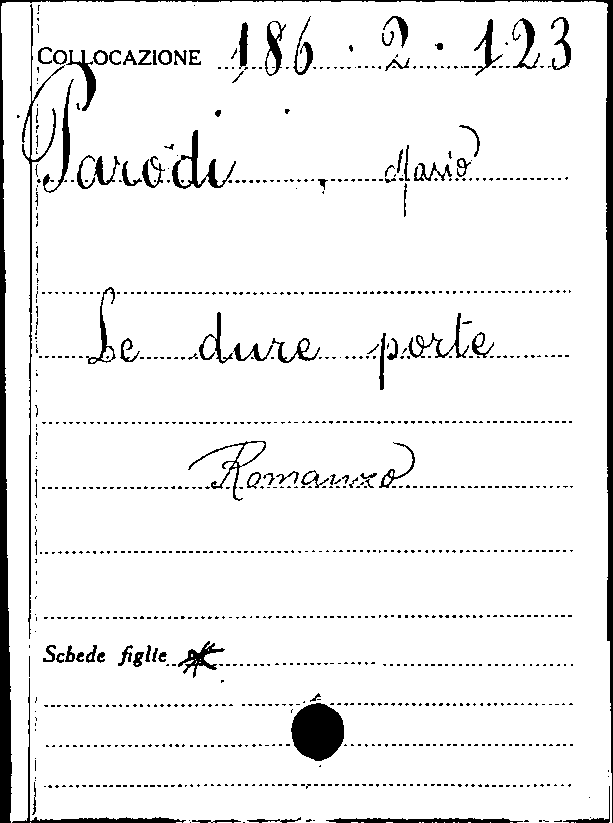 COLLOCAZIONE 186 · 2 · 123
Parodi, Mario
Le dure porte
Romanzo
Schede figlie